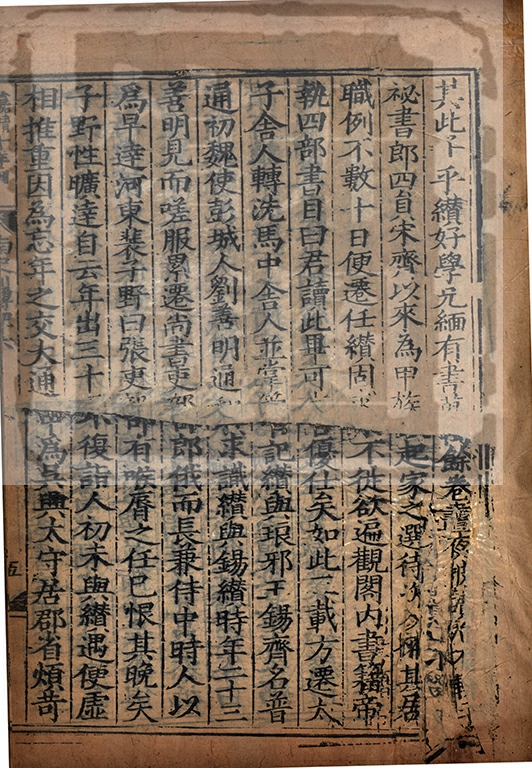 其此下乎纘好學兄緬有書萬餘卷晝夜披讀
祕書郎四員宋齊以來為甲族起家之選待次入補其居
職例不數十日便遷任纘固求不徙欲遍觀閣內書籍帝
執四部書目曰君讀此畢可言優仕矣如此三載方遷太
子舍人轉洗馬中舍人並掌管記纘與琅邪王錫齊名普
通初魏使彭城人劉善明通和求識纘與錫纘時年二十三
善明見而嗟服累遷尚書吏部郎俄而長兼侍中時人以
為早達河東裴子野曰張吏部有喉脣之任已恨其晚矣
子野性曠達自云年出三十不復詣人初未與纘遇便虛
相推重因為忘年之交大通中為吳興太守居郡省煩苛